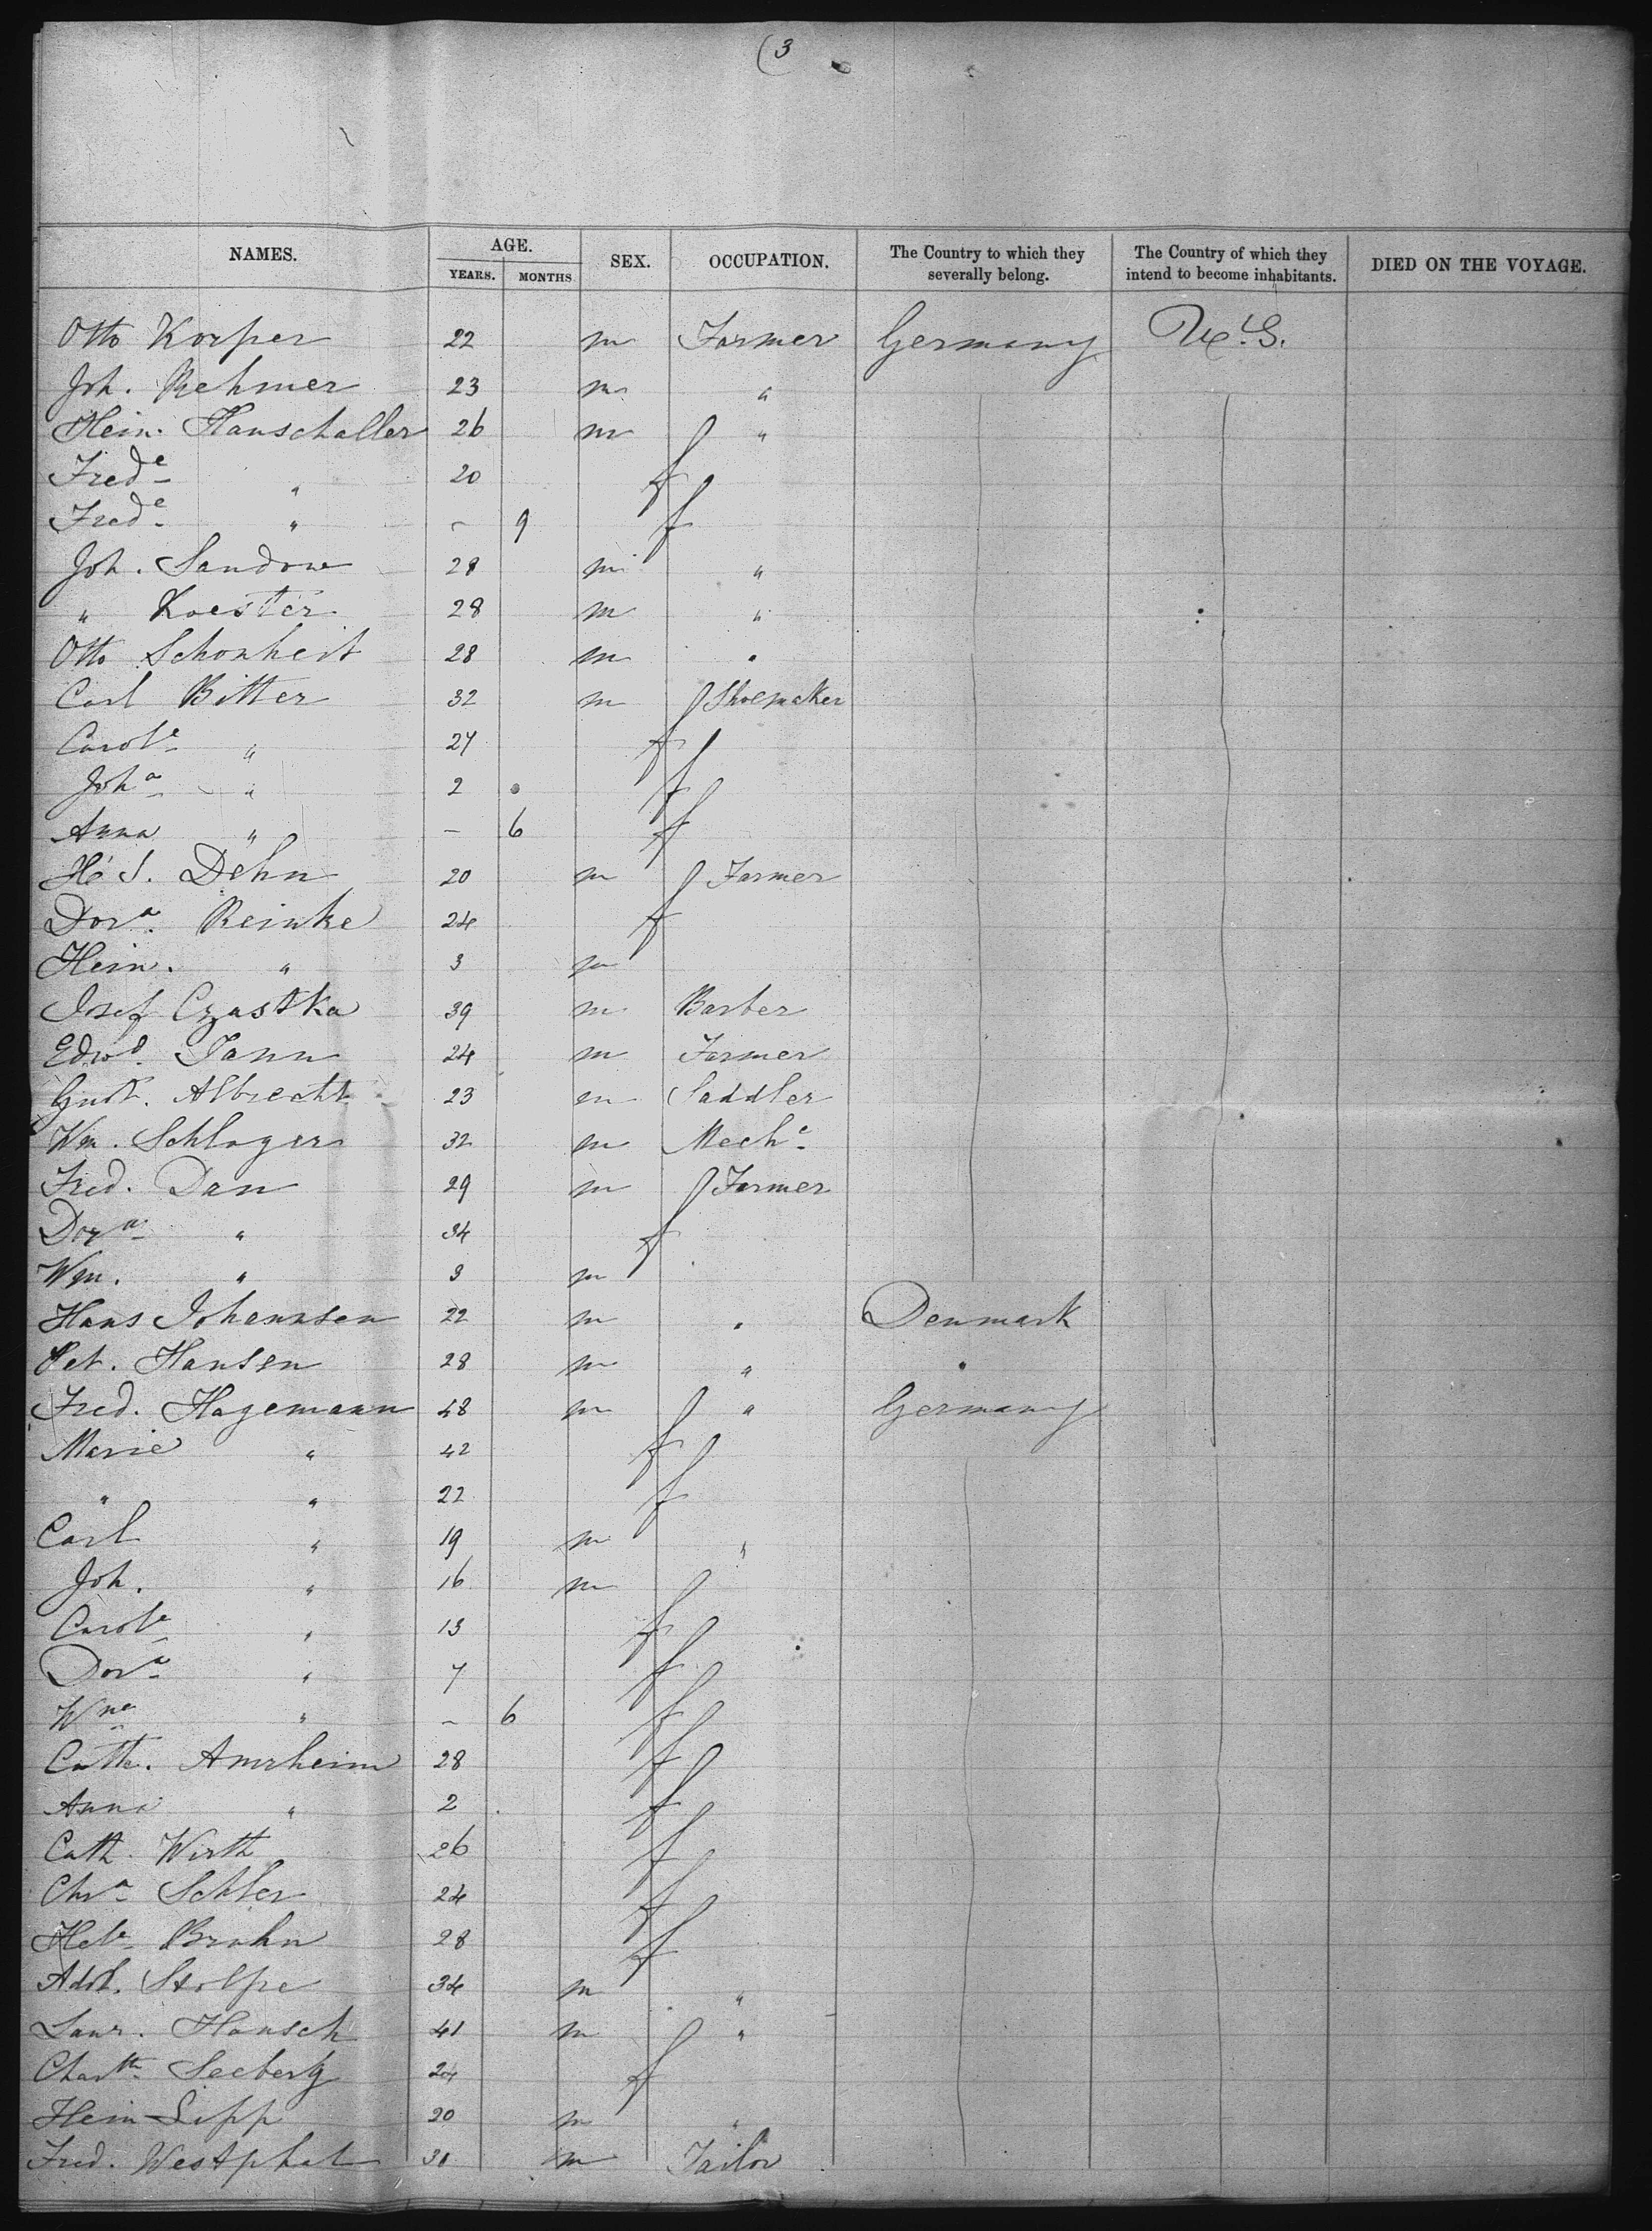 (3
NAMES. AGE. YEARS. MONTHS SEX. OCCUPATION. The Country to which they severally belong. The Country of which they intend to become inhabitants. DIED ON THE VOYAGE.
Otto Korper 22 m Farmer Germany U.S.
Joh. Rehmer 23 m "
Hein. Hanschaller 26 m "
Frede " 20 f
Frede " - 9 f
Joh. Sandow 28 m "
" Koester 28 m "
Otto Schonheit 28 m "
Carl Bitter 32 m Shoemaker
Carole " 27 f
Joha " 2 f
Anna " - 6 f
Dehn 20 m Farmer
Dora. Reinke 24 f
Hein. " 3 m
Josef Czastka 39 m Barber
Edwd. Jann 24 m Farmer
Gust. Albrecht 23 m Saddler
Wm. Schlager 32 m Mechc
Fred. Dan 29 m Farmer
Dora " 34 f
Wm. " 3 m
Hans Johannsen 22 m " Denmark
Pet. Hansen 28 m " "
Fred. Hagemann 48 m " Germany
Marie " 42 f
" " 22 f
Carl " 19 m "
Joh. " 16 m
Carole " 13 f
Dora " 7 f
Wne " - 6 f
Cath. Amrheim 28 f
Anna " 2 f
Cath. Wirth 26 f
Chra Sehler 24 f
Hele Brahn 28 f
Adol. Stolpe 34 m "
Laur. Hansch 41 m "
Chartte Seeberg 24 f
Hein Lipp 20 m "
Fred. Westphal 31 m Tailor